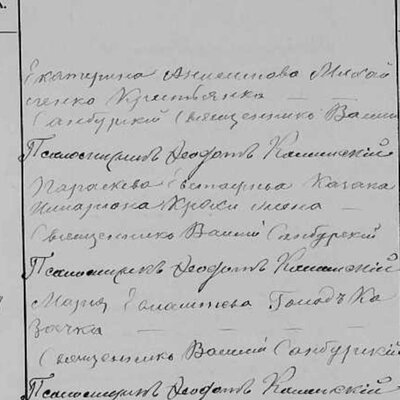 Екатерина Анисимова Михай
ленко Крестьянка
Санбурскій Священникъ Васил
Псаломщикъ Ѳеофатъ Каминскій
Параскева Евстафьева Казака
Иларіона Кроки жена
Священникъ Василій Санбурскій
Псаломщикъ Ѳеофатъ Каминскій
Марія Голодъ Ка
зачка
Священникъ Василій Санбурскій
Псаломщикъ Ѳеофатъ Каминскій